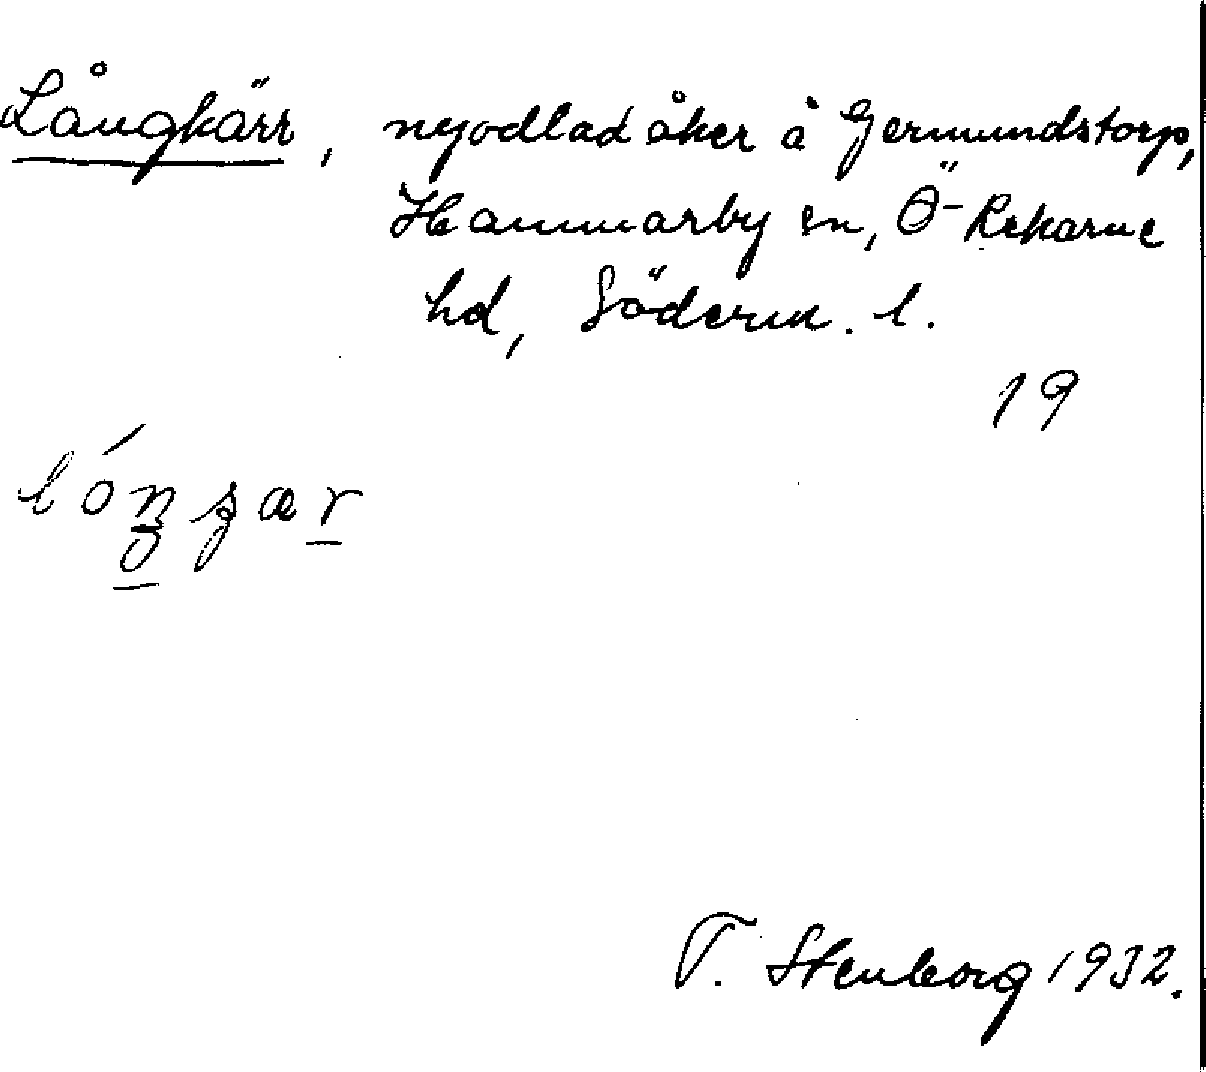 Långkärr, nyodlad åker å Germundstorp,
Hammarby sn, Ö-Rekarne
hd, Söderm. l.
19
T. Stenborg 1932.